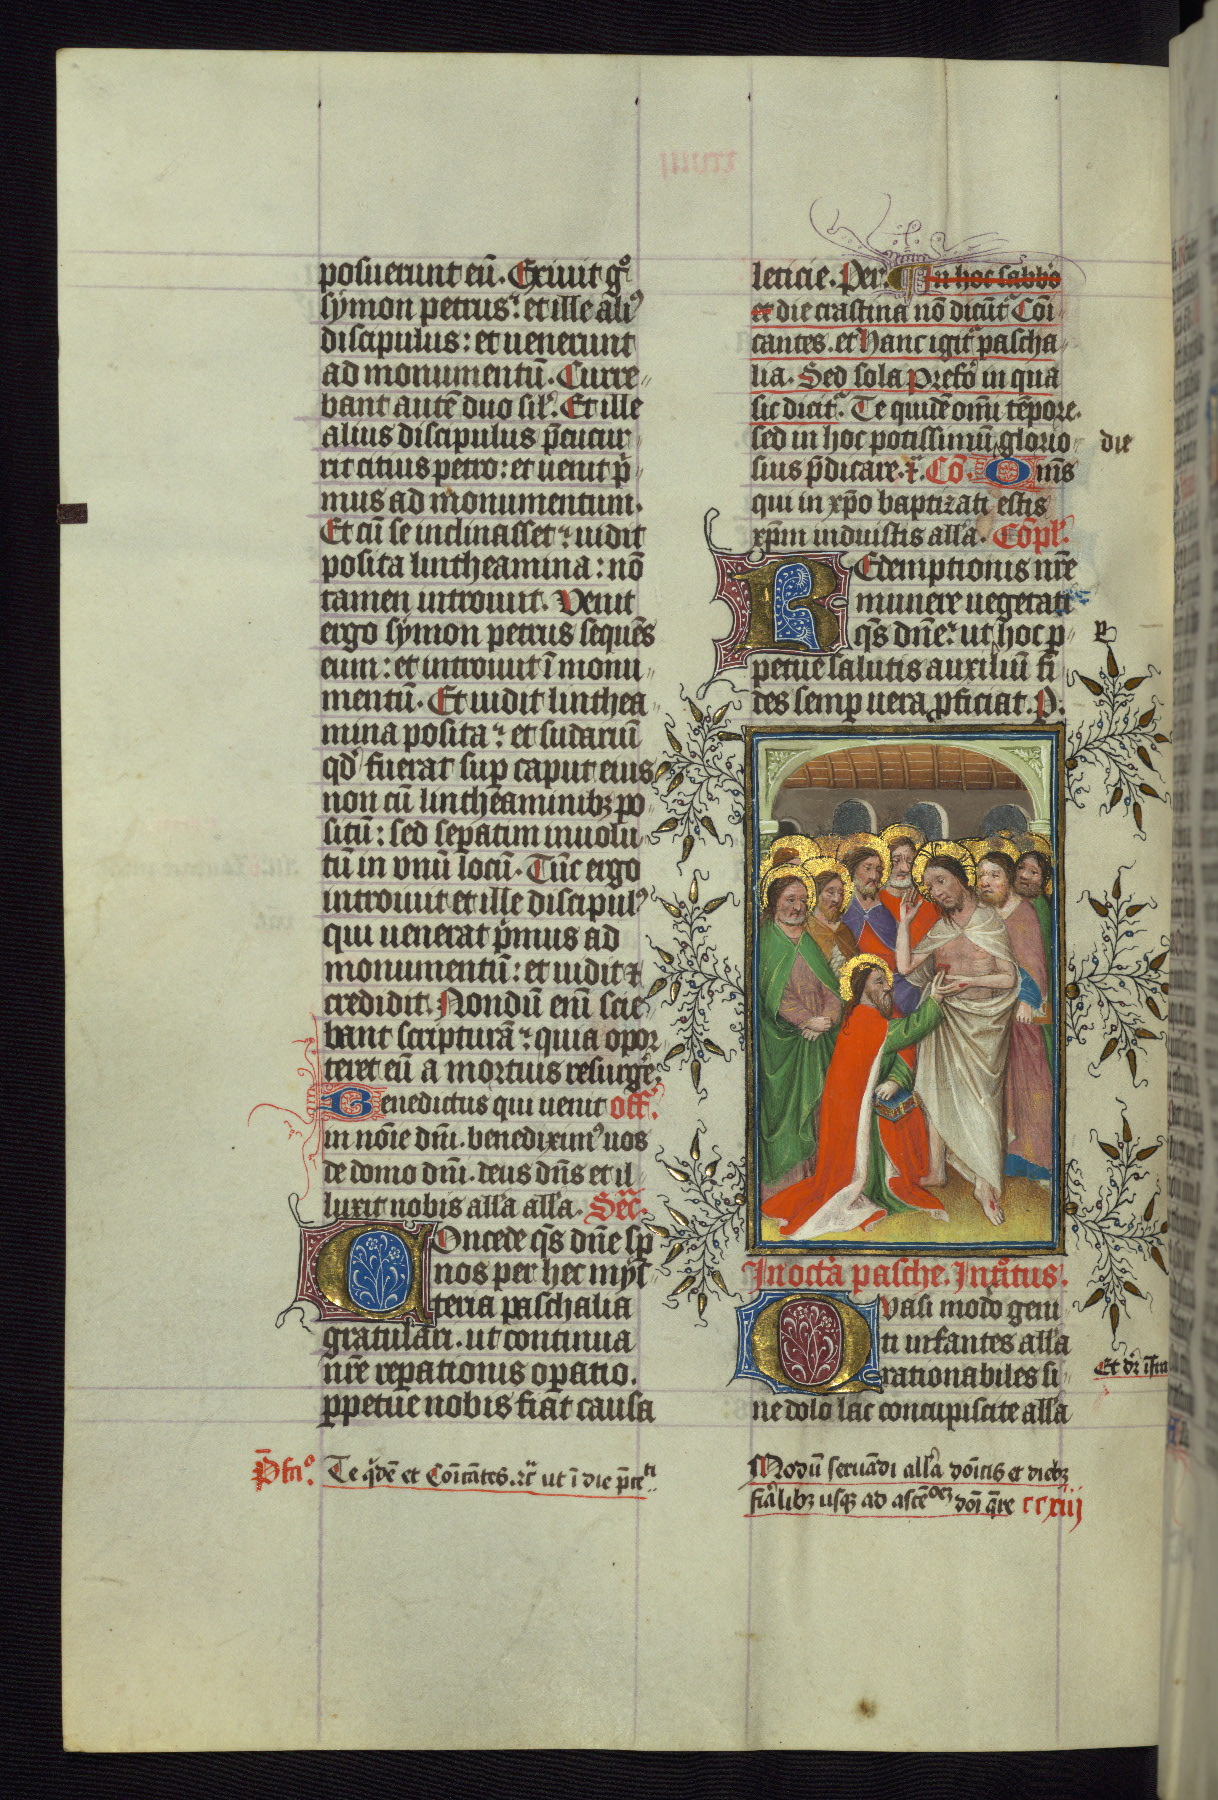 posuerunt eū. Exiuit gͦ
symon petrus: et ille aliꝰ
discipulus: et uenerunt
ad monumentū. Curre
bant autē duo sil'. Et ille
alius discipulus p̄cucur
rit citius petro: et uenit p̄
mus ad monumentum.
Et cū se inclinasset: uidit
posita lintheamina: nō
tamen introiuit. Venit
ergo symon petrus sequēs
eum: et introiuit ī monu
mentū. Et uidit linthea
mina posita: et sudariū
qđ fuerat suꝑ caput eius
non cū lintheaminibꝫ po
sitū: sed seꝑatim inuolu
tū in vnū locū. Tūc ergo
introiuit et ille discipulꝰ
qui uenerat p̄mus ad
monumentū: et uidit ⁊
credidit. Nondū enī scie
bant scripturā: quia opor
teret eū a mortuis resurgē.
Benedictus qui uenit off.
in nōie dn̄i. benediximꝰ uos
de domo dn̄i. deus dn̄s et il
luxit nobis all'a all'a. Sec̄.
Concede q̄s dn̄e sꝑ
nos per hec mys̄t
teria paschalia
gratulari. ut continua
nr̄e reꝑationis oꝑatio.
ꝑpetue nobis fiāt causa
P̄fatͦ. Te qͥdē et Cōicātes. ⁊c̄ ut ī die p̄cēti.
leticie. Per. In hoc sabb̄o
et die crastina nō dicūt Cōi
cantes. et Hanc igit̄ pascha
lia. Sed sola prefō in qua
sic dicit̄. Te quidē om̄i tēpore.
sed in hoc potissimū glorio
die
sius p̄dicare. ⁊. Cō. Om̄s
qui in xp̄o baptizati estis
xp̄m induistis all'a. Cōpl'.
Redemptionis nr̄e
munere uegetati
q̄s dn̄e: ut hoc ꝑ
petue salutis auxiliū fi
des semꝑ uera ꝓficiat. P.
In octā pasche. Intͦitus.
Quasi modo geni
ti infantes all'a
rationabiles si
Et dr̄ ista
ne dolo lac concupiscite all'a
Modū seruādi all'a dōicis et diebꝫ
fīalibꝫ usqꝫ ad ascēoēꝫ dōi q̄re ccxiij